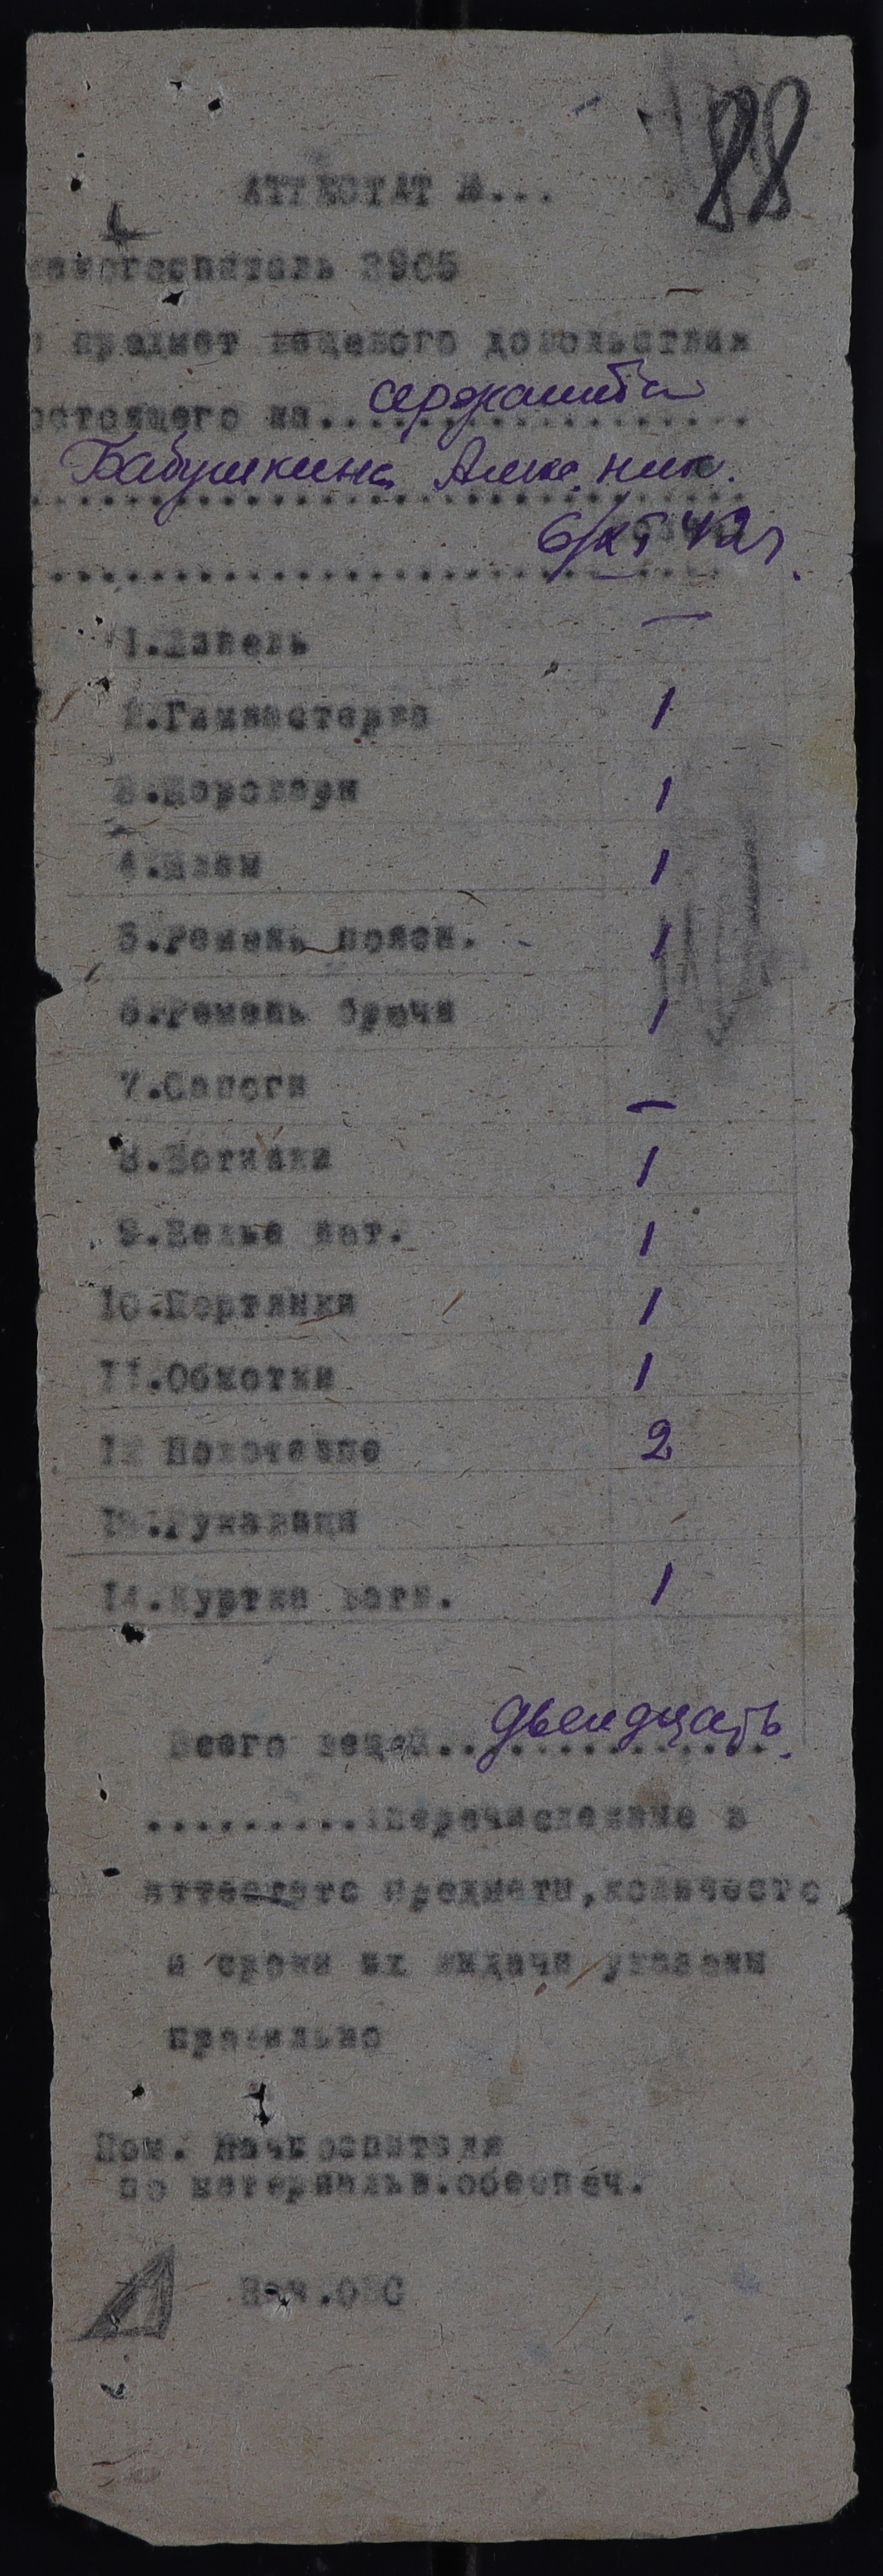 88
АТТЕСТАТ №...
госпиталь 2905
предмет вещевого довольствия
остоящего на...................
сержанта
Бабушкина Алекс. Ник.
6/XI 42г.
1.Шинель —
2.Гимнастерка 1
3.Шаровары 1
4.Шлем 1
5.Ремень поясн. 1
6.Ремень брючн 1
7.Сапоги —
8.Ботинки 1
9.Белье нат. 1
10.Портянки 1
11.Обмотки 1
12 Полотенце 2
13.Рукавицы
14.Куртка ватн. 1
Всего вещей............... двенадцать
..........Перечисление в
аттестате предметы,количество
и сроки их выдачи указаны
правильно
Пом. Начгоспиталя
по материальн.обеспеч.
Нач.ОВС